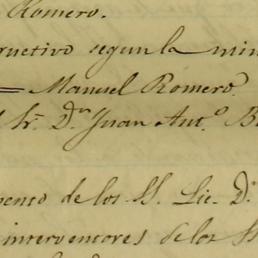 Romero.
ructivo segun la min
= Manuel Romero
Sr. Dn. Juan Anto. B
penso de los SS. Lic. D.
interventores de los SS